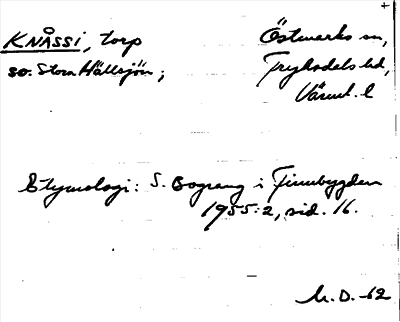 KNÅSSI, torp
Östmarks sn,
so. Stora Hällsjön;
Fryksdals hd,
Värml. l
Etymologi: S. Bograng i Finnbygden
1955:2, sid. 16.
M.D. -62